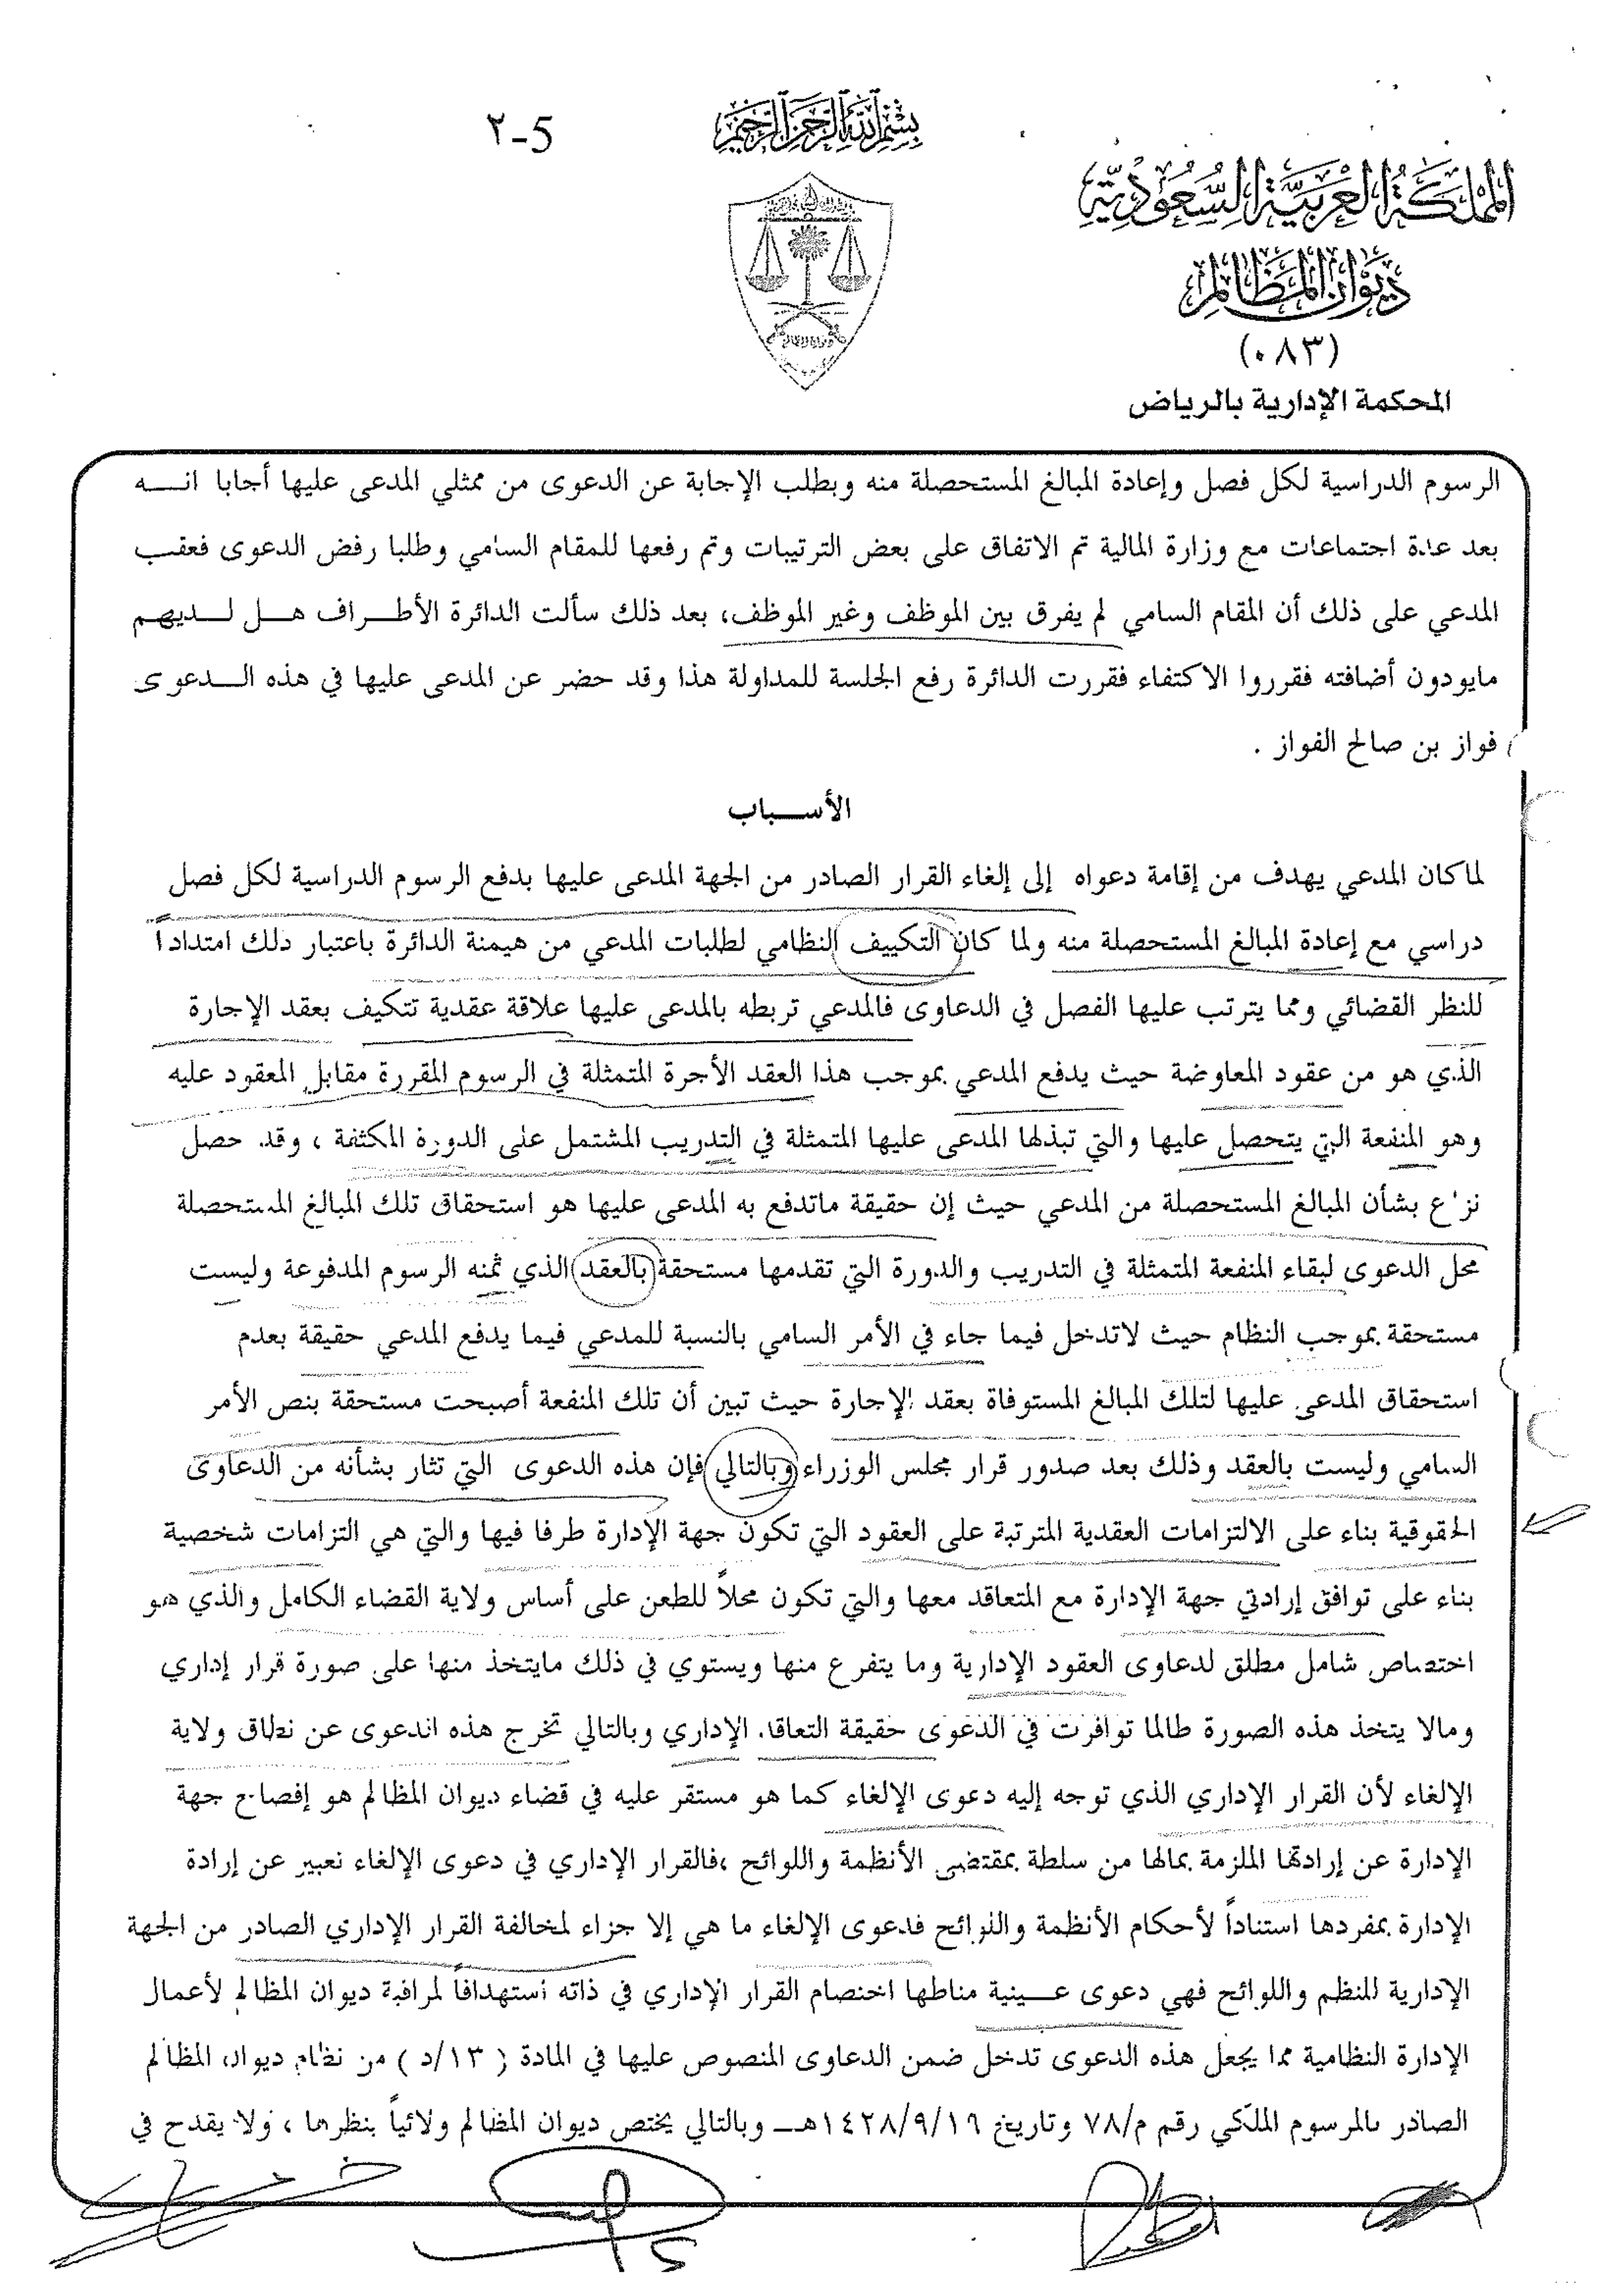 ٢-5
بسم الله الرحمن الرحيم
المملكة العربية السعودية
ديوان المظالم
(٠٨٣)
المحكمة الإدارية بالرياض
الرسوم الدراسية لكل فصل وإعادة المبالغ المستحصلة منه وبطلب الإجابة عن الدعوى من ممثلي المدعى عليها أجابا انـــه
بعد عدة اجتماعات مع وزارة المالية تم الاتفاق على بعض الترتيبات وتم رفعها للمقام السامي وطلبا رفض الدعوى فعقب
المدعي على ذلك أن المقام السامي لم يفرق بين الموظف وغير الموظف، بعد ذلك سألت الدائرة الأطــراف هــل لــديهم
مايودون أضافته فقرروا الاكتفاء فقررت الدائرة رفع الجلسة للمداولة هذا وقد حضر عن المدعى عليها في هذه الــدعوى
فواز بن صالح الفواز .
الأســـباب
لما كان المدعي يهدف من إقامة دعواه إلى إلغاء القرار الصادر من الجهة المدعى عليها بدفع الرسوم الدراسية لكل فصل
دراسي مع إعادة المبالغ المستحصلة منه ولما كان التكييف النظامي لطلبات المدعي من هيمنة الدائرة باعتبار ذلك امتداداً
للنظر القضائي ومما يترتب عليها الفصل في الدعاوى فالمدعي تربطه بالمدعى عليها علاقة عقدية تتكيف بعقد الإجارة
الذي هو من عقود المعاوضة حيث يدفع المدعي بموجب هذا العقد الأجرة المتمثلة في الرسوم المقررة مقابل المعقود عليه
وهو المنفعة التي يتحصل عليها والتي تبذلها المدعى عليها المتمثلة في التدريب المشتمل على الدورة المكثفة ، وقد حصل
نزاع بشأن المبالغ المستحصلة من المدعي حيث إن حقيقة ماتدفع به المدعى عليها هو استحقاق تلك المبالغ المستحصلة
محل الدعوى لبقاء المنفعة المتمثلة في التدريب والدورة التي تقدمها مستحقة بالعقد الذي ثمنه الرسوم المدفوعة وليست
مستحقة بموجب النظام حيث لاتدخل فيما جاء في الأمر السامي بالنسبة للمدعي فيما يدفع المدعي حقيقة بعدم
استحقاق المدعى عليها لتلك المبالغ المستوفاة بعقد الإجارة حيث تبين أن تلك المنفعة أصبحت مستحقة بنص الأمر
السامي وليست بالعقد وذلك بعد صدور قرار مجلس الوزراء وبالتالي فإن هذه الدعوى التي تثار بشأنه من الدعاوى
الحقوقية بناء على الالتزامات العقدية المترتبة على العقود التي تكون جهة الإدارة طرفا فيها والتي هي التزامات شخصية
بناء على توافق إرادتي جهة الإدارة مع المتعاقد معها والتي تكون محلاً للطعن على أساس ولاية القضاء الكامل والذي هو
اختصاص شامل مطلق لدعاوى العقود الإدارية وما يتفرع منها ويستوي في ذلك مايتخذ منها على صورة قرار إداري
ومالا يتخذ هذه الصورة طالما توافرت في الدعوى حقيقة التعاقد الإداري وبالتالي تخرج هذه الدعوى عن نطاق ولاية
الإلغاء لأن القرار الإداري الذي توجه إليه دعوى الإلغاء كما هو مستقر عليه في قضاء ديوان المظالم هو إفصاح جهة
الإدارة عن إرادتها الملزمة بمالها من سلطة بمقتضى الأنظمة واللوائح ،فالقرار الإداري في دعوى الإلغاء تعبير عن إرادة
الإدارة بمفردها استناداً لأحكام الأنظمة واللوائح فدعوى الإلغاء ما هي إلا جزاء لمخالفة القرار الإداري الصادر من الجهة
الإدارية للنظم واللوائح فهي دعوى عـــينية مناطها اختصام القرار الإداري في ذاته استهدافاً لمراقبة ديوان المظالم لأعمال
الإدارة النظامية مما يجعل هذه الدعوى تدخل ضمن الدعاوى المنصوص عليها في المادة ( ١٣/د ) من نظام ديوان المظالم
الصادر بالمرسوم الملكي رقم م/٧٨ وتاريخ ١٤٢٨/٩/١٦هــ وبالتالي يختص ديوان المظالم ولائياً بنظرها ، ولا يقدح في